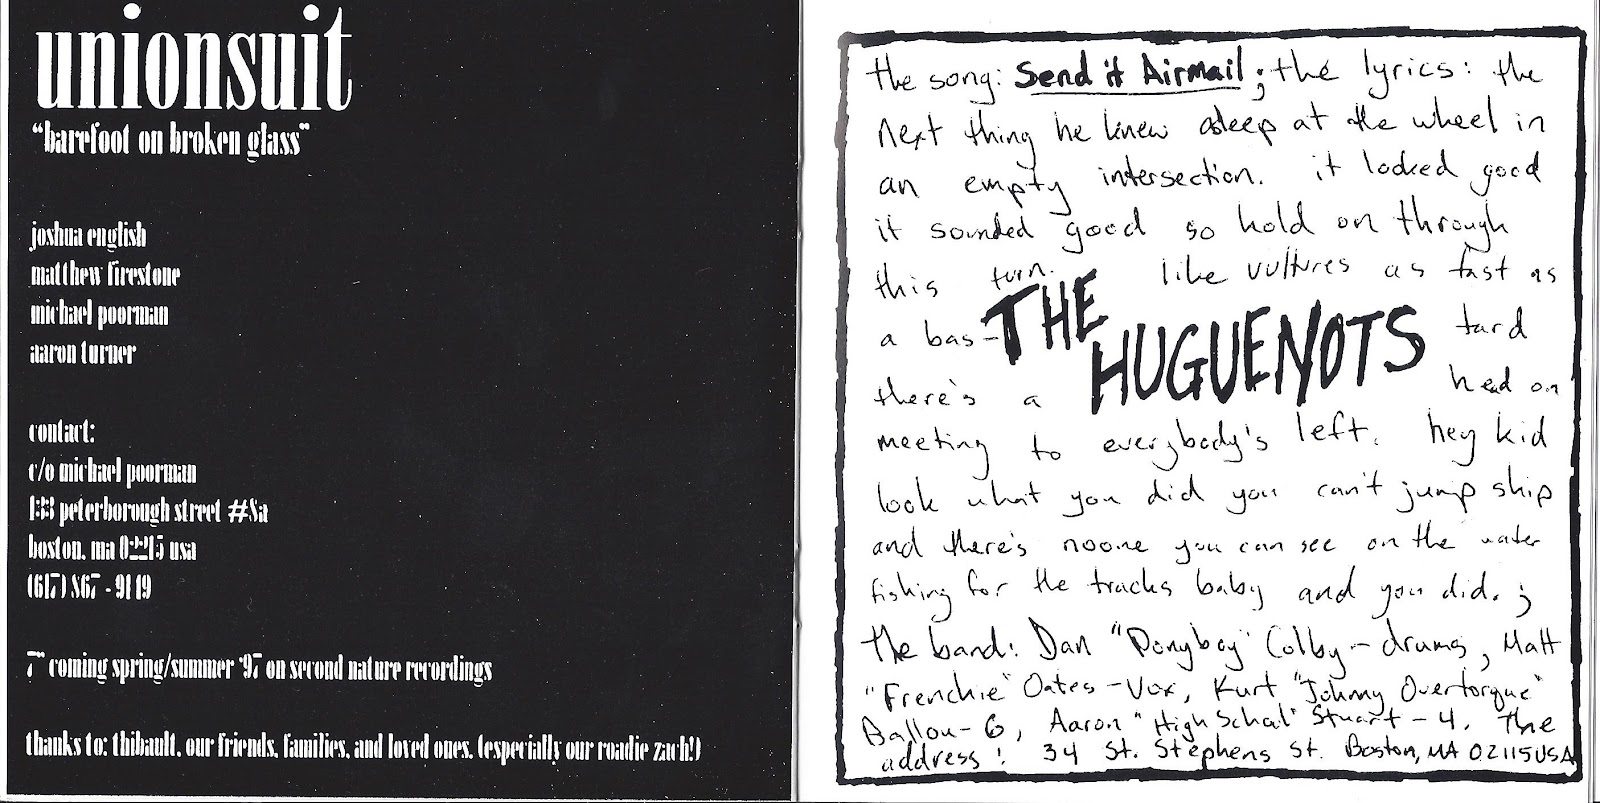 unionsuit
"barefoot on broken glass"
joshua english
matthew firestone
michael poorman
aaron turner
contact:
c/o michael poorman
133 peterborough street #8a
boston, ma 02215 usa
(617) 867 - 9149
7" coming spring/summer '97 on second nature recordings
thanks to: thibault, our friends, families, and loved ones. (especially our roadie zach!)
the song: Send it Airmail ; the lyrics: the
next thing he knew asleep at the wheel in
an empty intersection. it looked good
it sounded good so hold on through
this turn. like vultures as fast as
a bas- tard
THE
HUGUENOTS
there's a head on
meeting to everybody's left. hey kid
look what you did you can't jump ship
and there's noone you can see on the water
fishing for the tracks baby and you did. ;
the band: Dan "Ponyboy" Colby - drums, Matt
"Frenchie" Oates - Vox, Kurt "Johnny Overtorque"
Ballou - 6, Aaron "High School" Stuart - 4. The
address: 34 St. Stephens St. Boston, MA 02115 USA